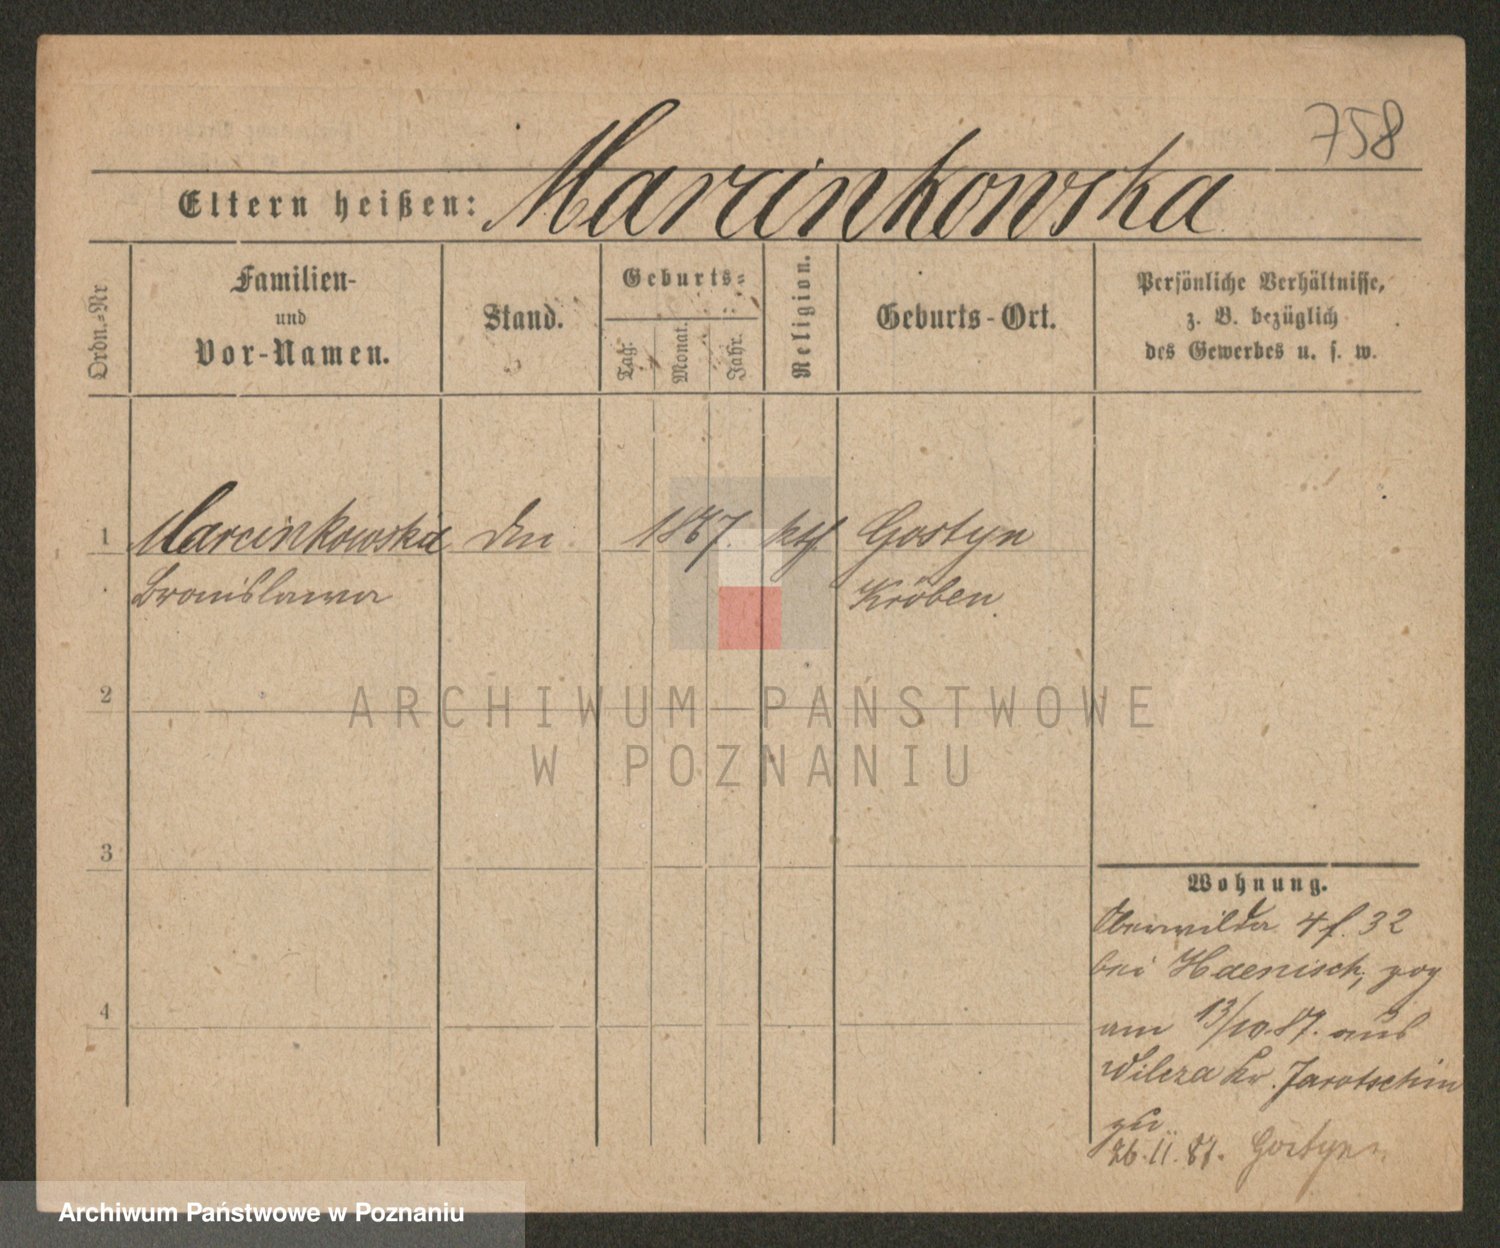 758
Eltern heißen: Marcinkowska
Ordn.-Nr
Familien-
und
Vor-Namen.
Stand.
Geburts-
Tag.
Monat.
Jahr.
Religion.
Geburts-Ort.
Persönliche Verhältnisse,
z. B. bezüglich
des Gewerbes u. s. w.
1 Marcinkowska 1867. kth Gostyn
Bronislawa Kröben.
2
ARCHIWUM PAŃSTWOWE
W POZNANIU
3
4
Wohnung.
Oberwilda 4 f. 32
bei Haenisch, zog
am 13/10.87. aus
Wilcza Kr. Jarotschin
zu
26.11.87. Gostyn
Archiwum Państwowe w Poznaniu